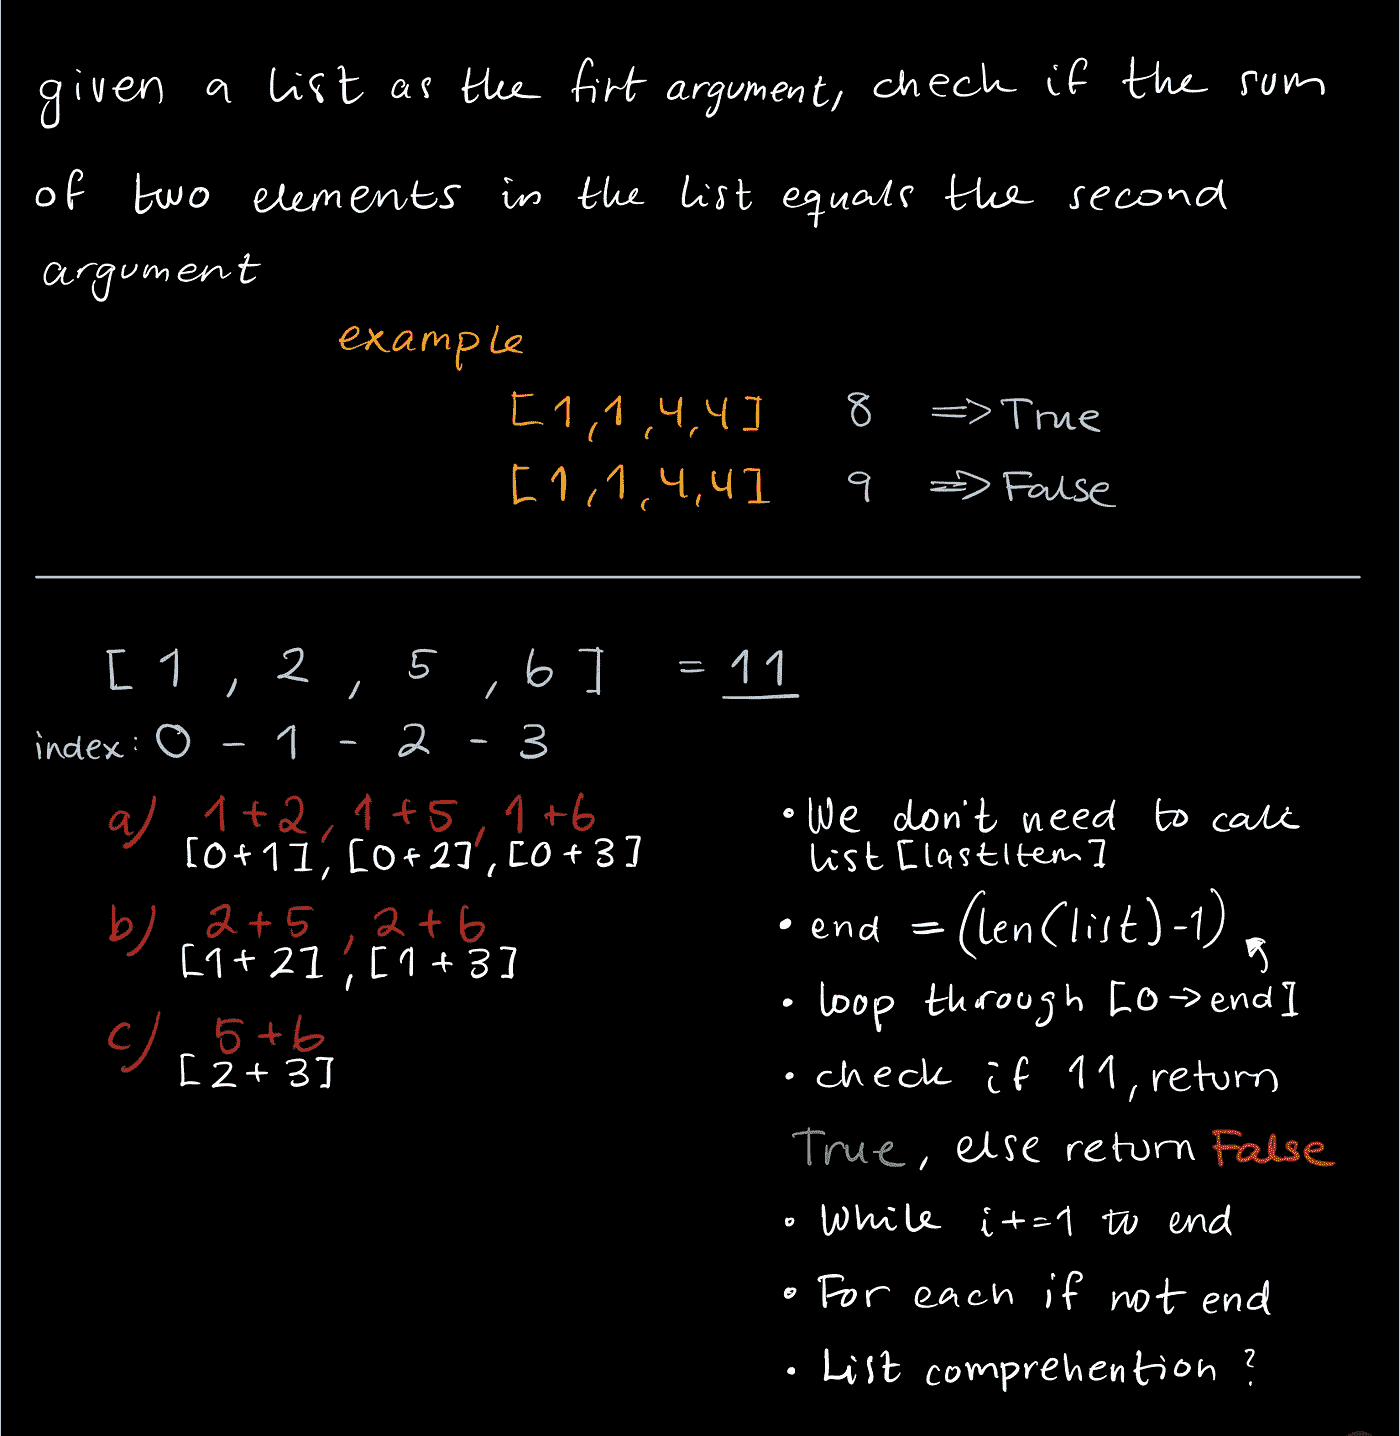 given a list as the firt argument, check if the sum
of two elements in the list equals the second
argument
example
[1,1,4,4] 8 => True
[1,1,4,4] 9 => False
[1, 2, 5, 6] = 11
index: 0 - 1 - 2 - 3
a) 1+2, 1+5, 1+6
[0+1], [0+2], [0+3]
b) 2+5, 2+6
[1+2], [1+3]
c) 5+6
[2+3]
• We don't need to calc
list[lastItem]
• end = (len(list)-1)
• loop through [0→end]
• check if 11, return
True, else return False
• While i+=1 to end
• For each if not end
• List comprehention ?